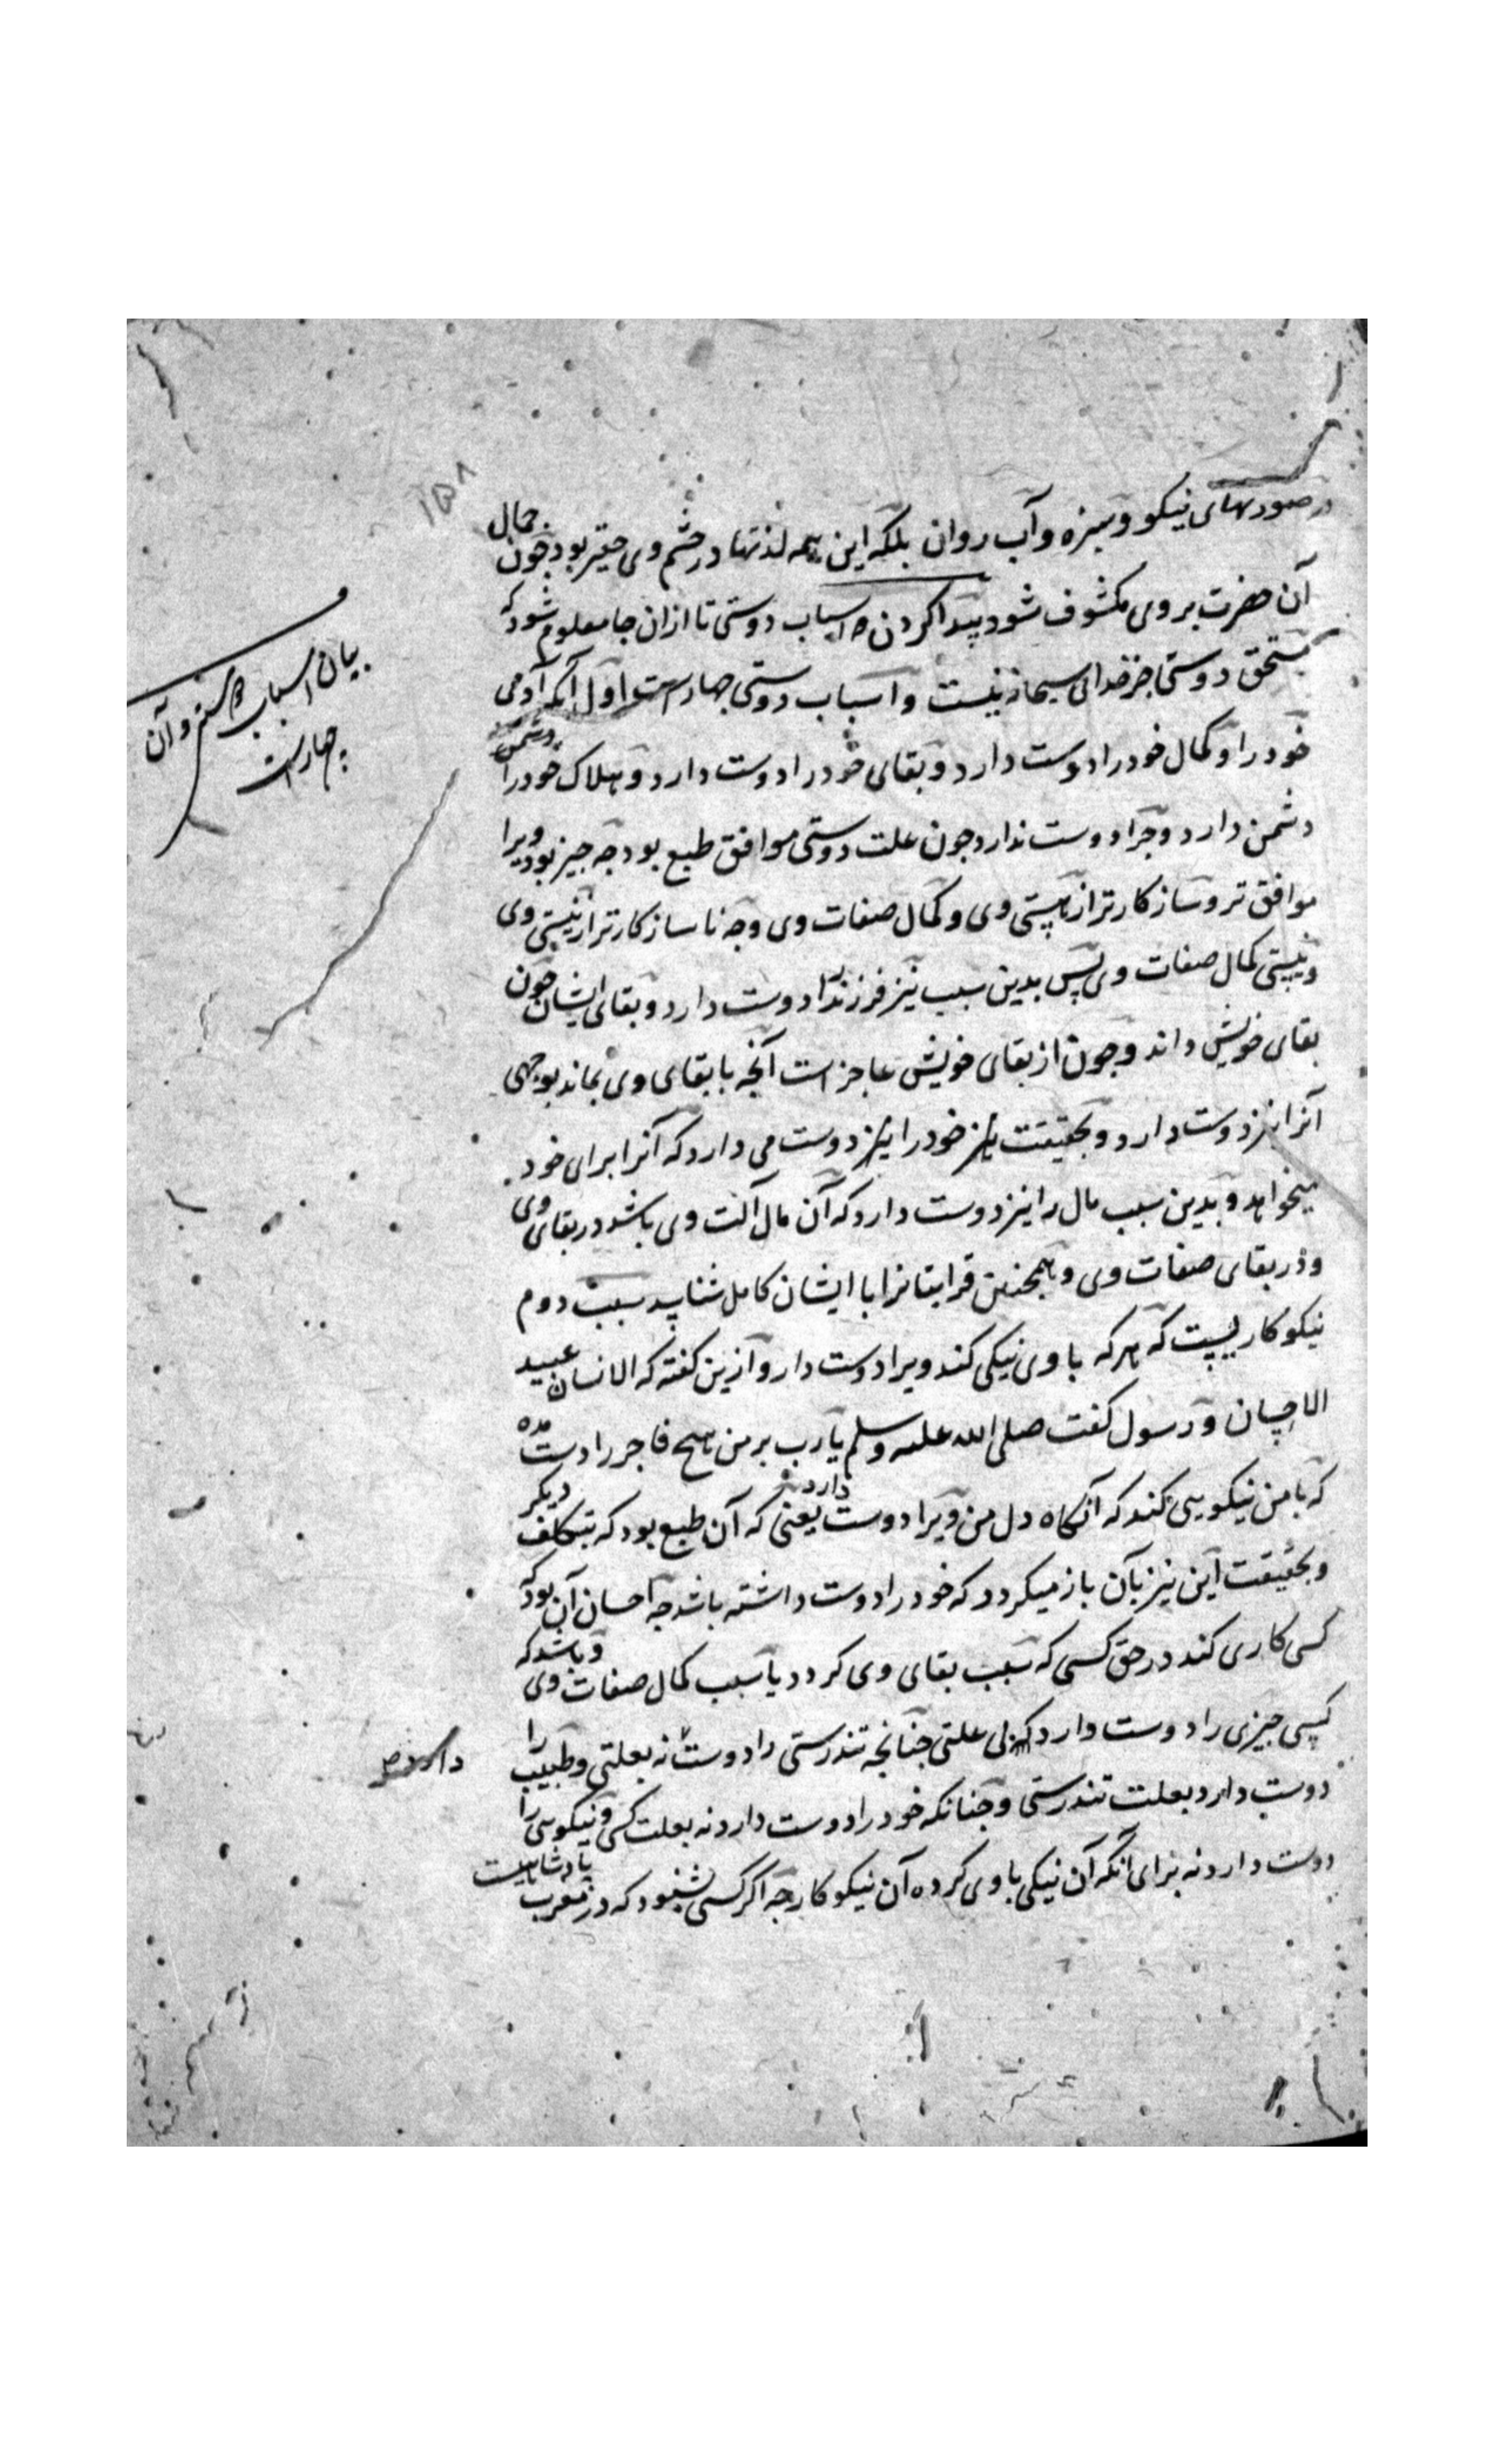 ۱۵۸
در صورتهای نیکو و سبزه و آب روان بلکه این همه لذتها در چشم وی حقیر بود چون جمال
آن حضرت بر وی مکشوف شود پیدا کردن اسباب دوستی تا از ان جا معلوم شود که
مستحق دوستی جز خدای نیست و اسباب دوستی چهارست اول آنکه آدمی
خود را و کمال خود را دوست دارد و بقای خود را دوست دارد و هلاک خود را دشمن
دشمن دارد و چرا دوست ندارد چون علت دوستی موافق طبع بود چه چیز بود ویرا
موافق تر و سازکارتر از هستی وی و کمال صفات وی و چه ناسازکارتر از نیستی وی
و نیستی کمال صفات وی پس بدین سبب نیز فرزند را دوست دارد و بقای ایشان چون
بقای خویش داند و چون از بقای خویش عاجز است آنچه با بقای وی بماند بوجهی
آنرا نیز دوست دارد و بحقیقت نیز خود را نیز دوست می دارد که آنرا برای خود
میخواهد و بدین سبب مال را نیز دوست دارد که آن مال آلت وی باشد در بقای وی
و در بقای صفات وی و همچنین قرابتانرا با ایشان کامل شناسد سبب دوم
نیکوکاریست که هر که با وی نیکی کند ویرا دوست دارد و ازین گفته که الانسان عبید
الاحسان و رسول گفت صلی الله علیه وسلم یارب بر من هیچ فاجر را دست مده
که با من نیکویی کند که آنگاه دل من ویرا دوست دارد یعنی که آن طبع بود که بتکلف دیگر
و بحقیقت این نیز بآن باز میگردد که خود را دوست داشته باشد چه احسان آن بود که
کسی کاری کند در حق کسی که سبب بقای وی گردد یا سبب کمال صفات وی و باشد که
کسی چیزی را دوست دارد که بی علتی چنانچه تندرستی را دوست نه بعلتی و طبیب را
دوست دارد بعلت تندرستی و چنانکه خود را دوست دارد نه بعلت کسی و نیکویی را
دوست دارد نه برای آنکه آن نیکی با وی کرده آن نیکوکار چه اگر کسی بشنود که در مغرب پادشاهیست
بیان اسباب دوستی و آن
چهارست
دارد